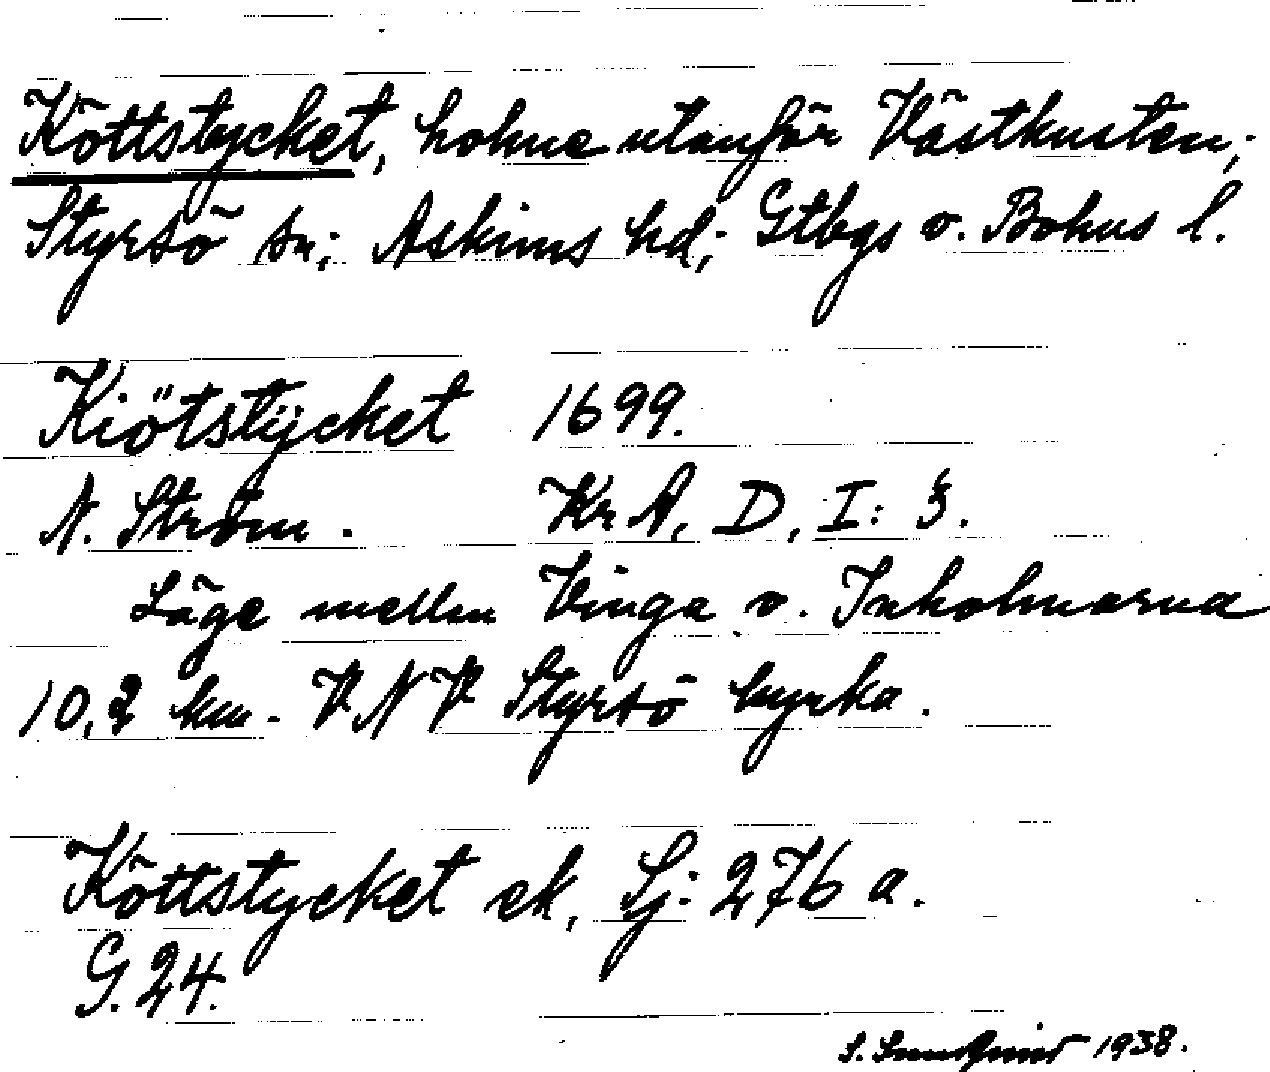 Köttstycket, holme utanför Västkusten;
Styrsö sn; Askims hd; Gtbgs o. Bohus l.
Kiötstÿcket 1699.
N. Ström. KrA, D, I: 3.
Läge mellan Vinga o. Inholmarna
10,2 km. VNV Styrsö kyrka.
Köttstycket ek, Sj: 276 a.
G. 24.
S. 1938.